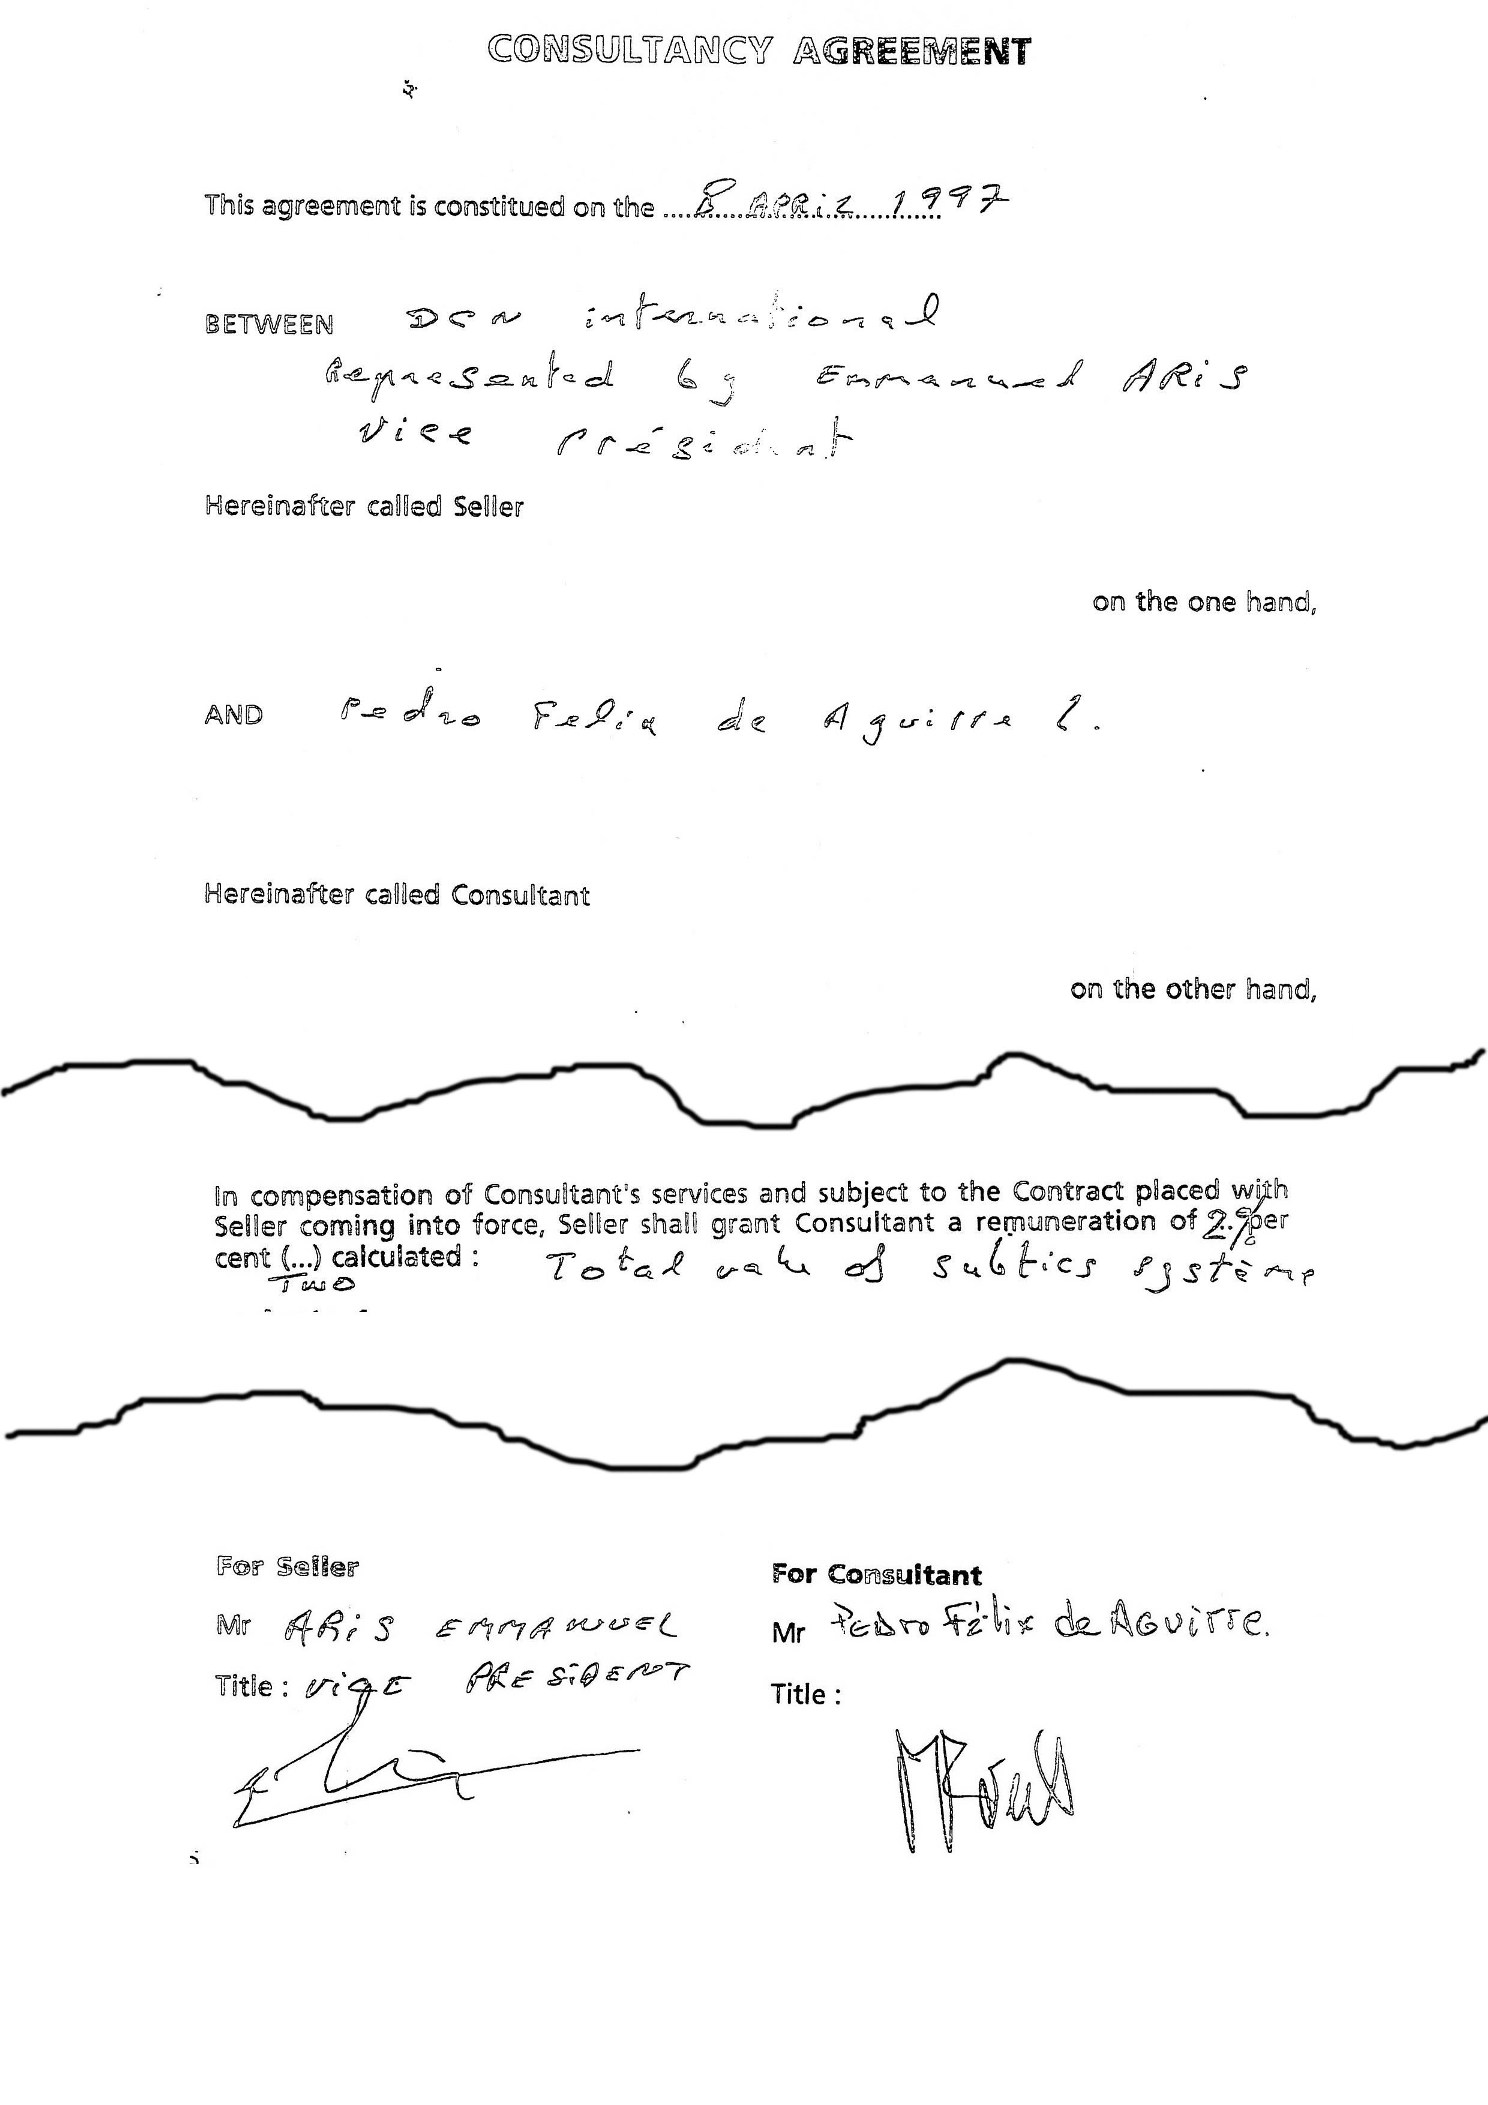 CONSULTANCY AGREEMENT
This agreement is constitued on the ....8 APRiL 1997
BETWEEN DCN international
Represented by Emmanuel ARiS
Vice Présidant
Hereinafter called Seller
on the one hand,
AND Pedro Felix de Aguirre L.
Hereinafter called Consultant
on the other hand,
In compensation of Consultant's services and subject to the Contract placed with
Seller coming into force, Seller shall grant Consultant a remuneration of 2.% per
cent (...) calculated : Total value of subtics système
Two
For Seller
For Consultant
Mr ARiS EMMANUEL
Mr Pedro Félix de Aguirre.
Title : ViCE PRESiDENT
Title :